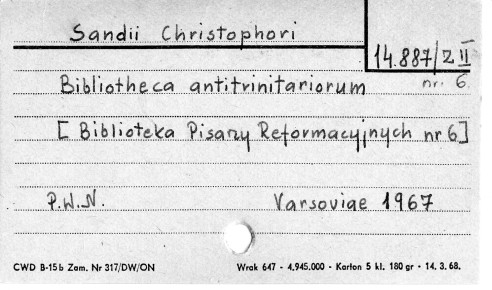 Sandii Christophori
14.887/Z II
nr. 6.
Bibliotheca antitrinitariorum
[Biblioteka Pisarzy Reformacyjnych nr 6]
P.W.N. Varsoviae 1967
CWD B-15b Zam. Nr 317/DW/ON Wrak 647 - 4.945.000 - Karton 5 kl. 180 gr - 14. 3. 68.